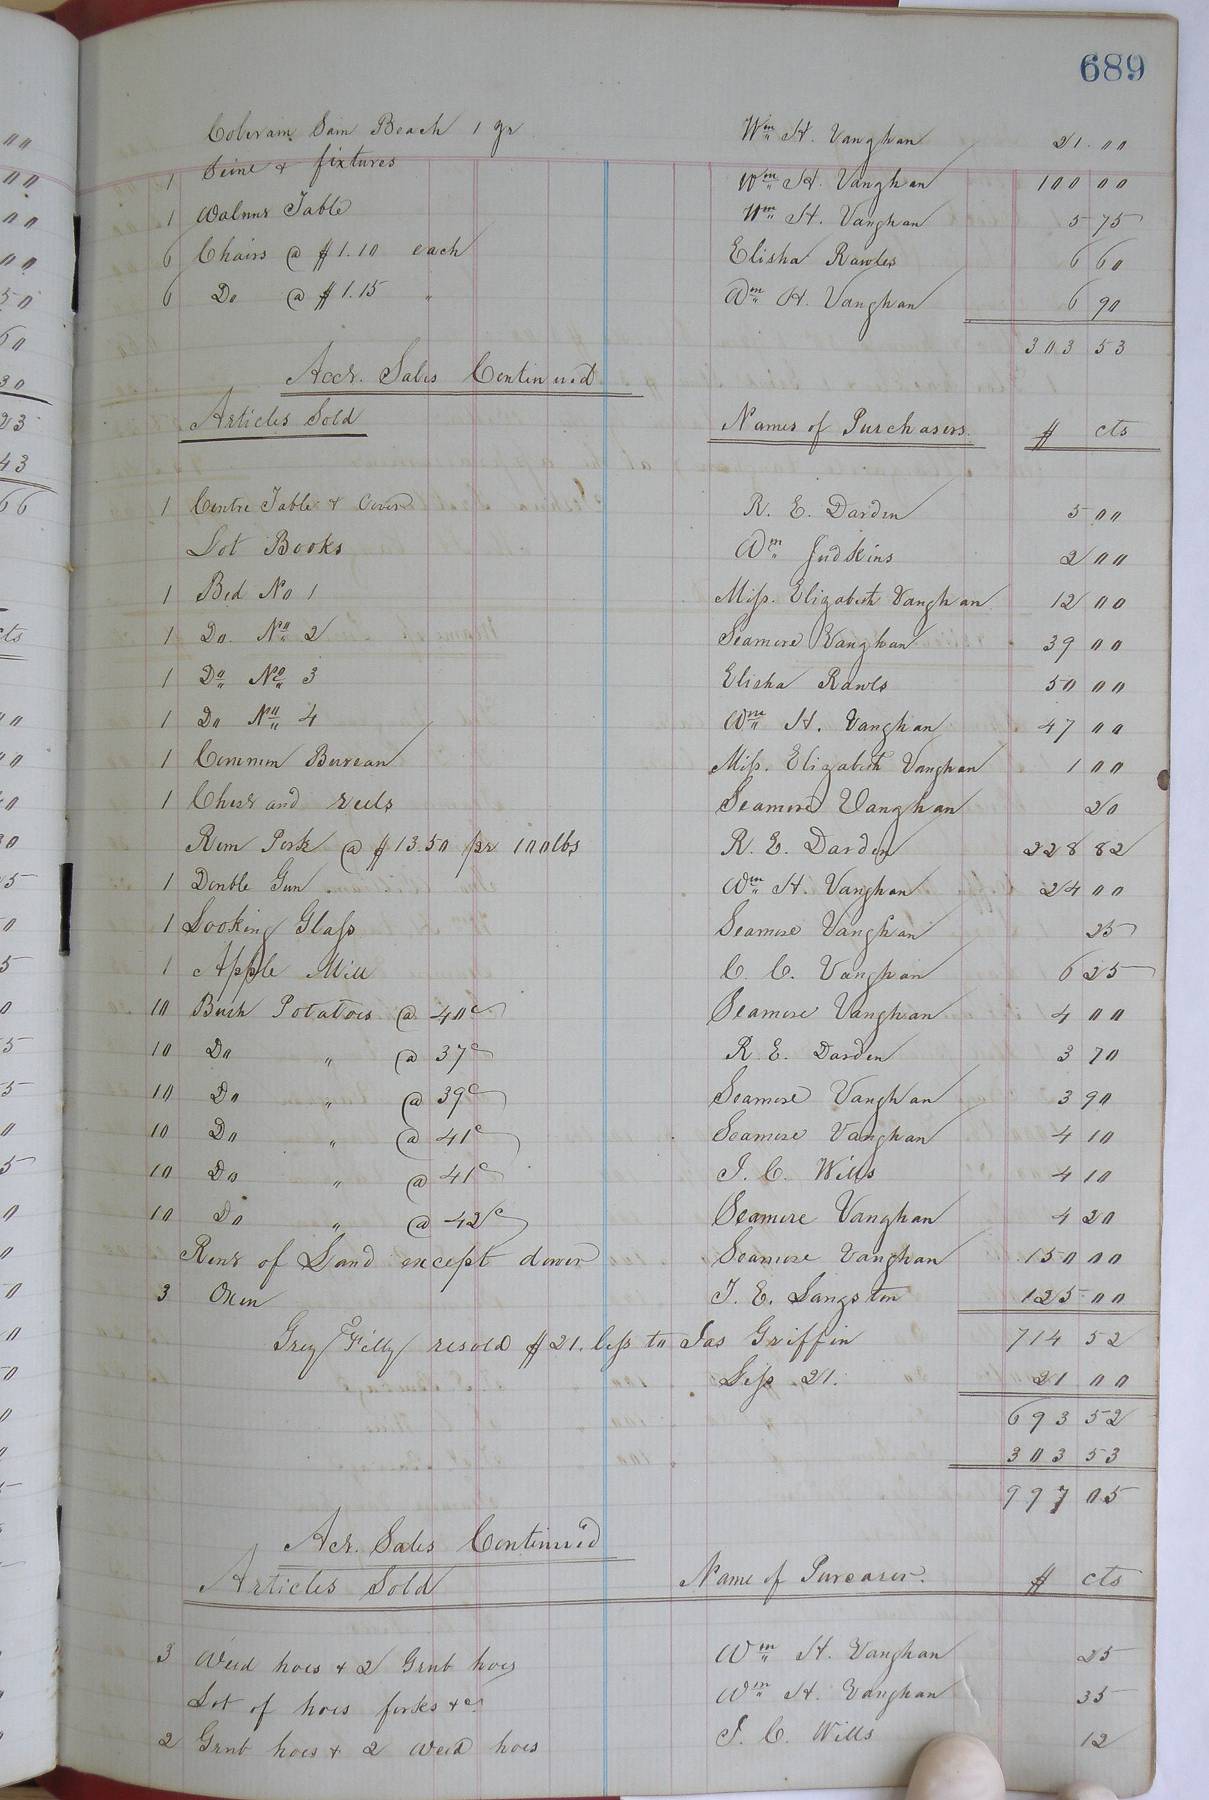 689
Colerain Sam Beach 1 yr Wm H. Vaughan 21 00
1 Seine & fixtures Wm H. Vaughan 100 00
1 Walnut Table Wm H. Vaughan 5 75
6 Chairs @ $1.10 each Elisha Rawles 6 60
6 Do @ $1.15 " Wm H. Vaughan 6 90
303 53
Acct. Sales Continued
Articles Sold Names of Purchasers. $ cts
1 Centre Table & Cover R. E. Darden 5 00
Lot Books Wm Judkins 2 00
1 Bed No 1 Miss. Elizabeth Vaughan 12 00
1 Do. No 2 Seamore Vaughan 39 00
1 Do No 3 Elisha Rawls 50 00
1 Do No 4 Wm H. Vaughan 47 00
1 Common Bureau Miss. Elizabeth Vaughan 1 00
1 Chest and reels Seamore Vaughan 20
Rem Pork @ $13.50 per 100lbs R. E. Darden 228 82
1 Double Gun Wm H. Vaughan 24 00
1 Looking Glass Seamore Vaughan 25
1 Apple Mill C. C. Vaughan 6 25
10 Bush Potatoes @ 40c Seamore Vaughan 4 00
10 Do " @ 37c R. E. Darden 3 70
10 Do " @ 39c Seamore Vaughan 3 90
10 Do " @ 41c Seamore Vaughan 4 10
10 Do " @ 41c J. C. Wills 4 10
10 Do " @ 42c Seamore Vaughan 4 20
Rent of Land except dower Seamore Vaughan 150 00
3 Oxen T. E. Langston 125 00
Grey Filly resold $21. less to Jas Griffin 714 52
Less 21. 21 00
693 52
303 53
997 05
Act. Sales Continued
Articles Sold Name of Purcaser. $ cts
3 Weed hoes & 2 Grub hoes Wm H. Vaughan 25
Lot of hoes forks &c Wm H. Vaughan 35
2 Grub hoes & 2 weed hoes J. C. Wills 12